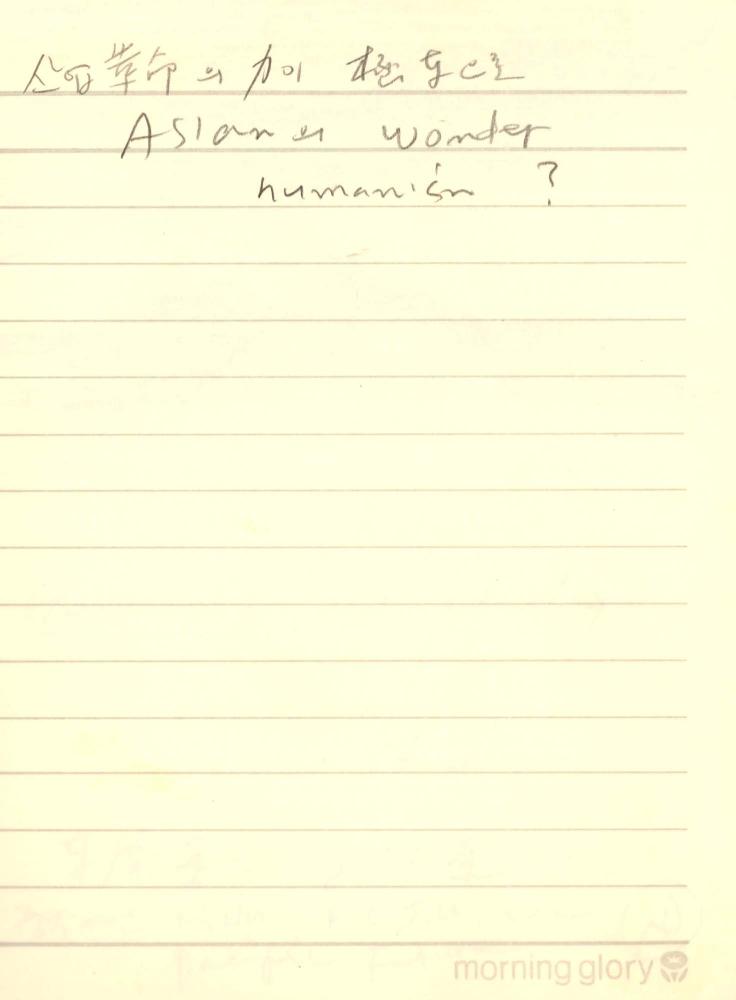 산업革命의 힘이 極東으로
Asian의 wonder
humanism ?
morning glory